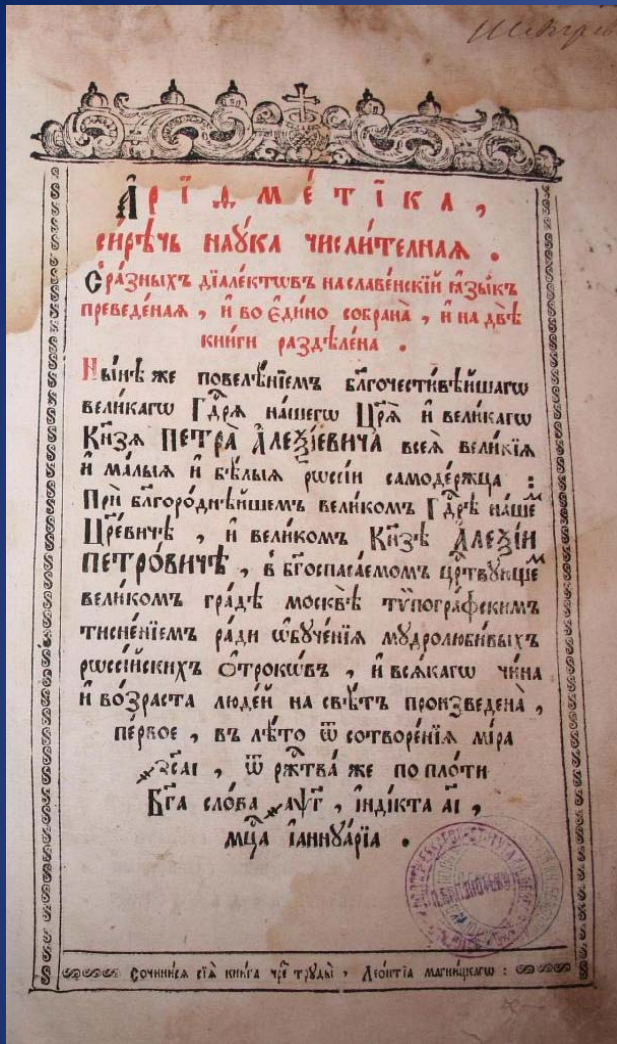 А҆рїѳме́тїка,
си́рѣчь наꙋ́ка числи́телная.
С̾ ра́зныхъ дїале́ктѡвъ на славе́нскїй ꙗ҆зы́къ
преведе́наѧ, и҆ во є҆ди́но собрана̀, и҆ на двѣ̀
кни́ги раздѣле́на.
Ны́нѣ же повелѣ́нїемъ бл҃гочести́вѣйшагѡ
вели́кагѡ Гдⷭ҇рѧ на́шегѡ Цр҃ѧ̀ и҆ вели́кагѡ
Кн҃зѧ ПЕТРА̀ А҆ЛЕѮІ́ЕВИЧА всеѧ̀ вели́кїѧ
и҆ ма́лыѧ и҆ бѣ́лыѧ рѡссі́и самоде́ржца:
Прѝ бл҃горо́днѣйшемъ вели́комъ Гдⷭ҇рѣ на́шеⷨ
Цр҃е́вичѣ, и҆ вели́комъ Кн҃зѣ А҆ЛЕѮІ́И
ПЕТРО́ВИЧѢ, в̾ бг҃оспаса́емомъ црⷭ҇твꙋ́ющеⷨ
вели́комъ гра́дѣ москвѣ̀ тѷпогра́фскимъ
тисне́нїемъ ра́ди ѡ҆бꙋче́нїѧ мꙋдролюби́выхъ
рѡссі́йскихъ ѻ҆́трокѡвъ, и҆ всѧ́кагѡ чи́на
и҆ во́зраста люде́й на свѣ́тъ произведена̀,
пе́рвое, въ лѣ́то ѿ сотворе́нїѧ мі́ра
҂зс҃аі, ѿ ржⷭ҇тва́ же по пло́ти
Бг҃а сло́ва ҂аѱ҃г, і҆нді́кта а҃і,
мцⷭ҇а і҆аннꙋа́рїа.
Сочини́сѧ сїѧ̀ кни́га чре́⁸ трꙋды̀, Лео́нтїа магни́цкагѡ: